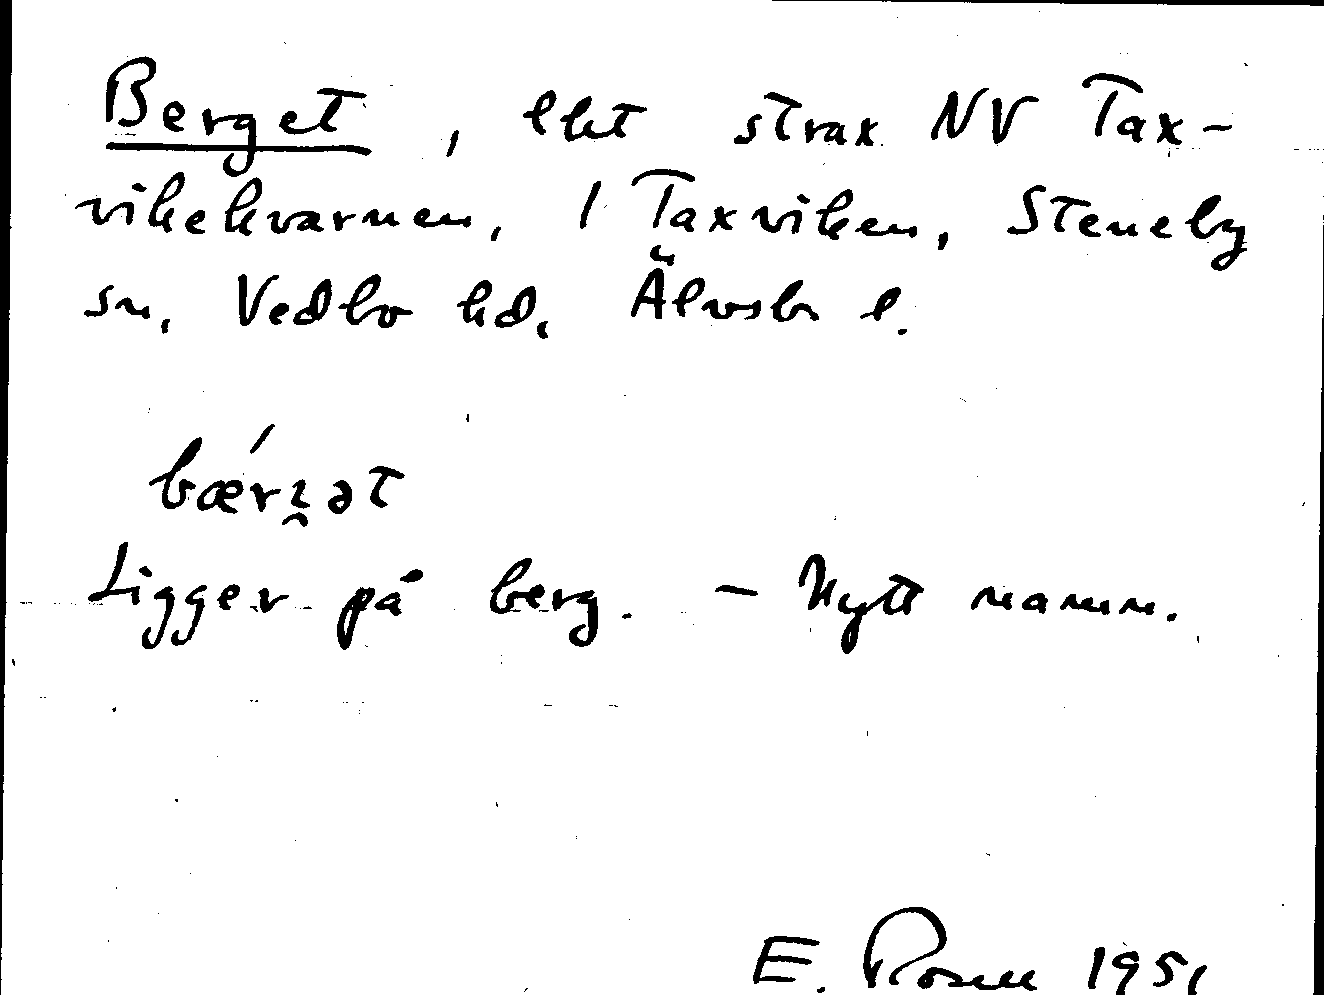 Berget, lht strax NV Tax-
vikekvarnen, 1 Taxviken, Steneby
sn, Vedbo hd, Älvsb l.
bǽrꝫ̑ət
Ligger på berg. – Nytt namn.
E. Rosell 1951